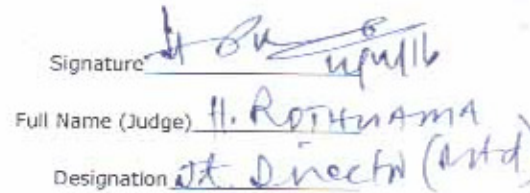 Signature
Full Name (Judge) H. ROTHUAMA
Designation Jt. Director (Rtd)